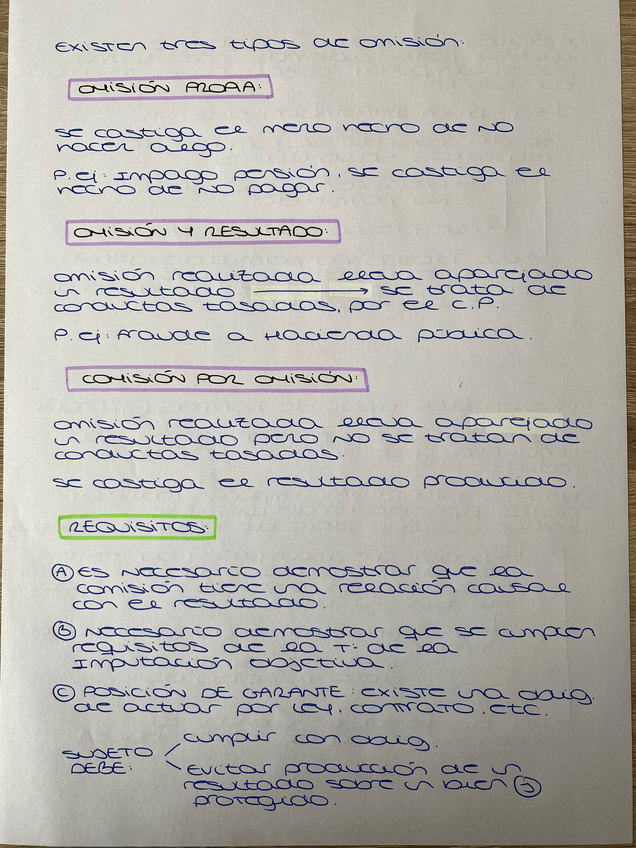 EXISTEN tres tipos de omisión:
OMISIÓN PROPIA:
se castiga el mero hecho de NO
hacer algo.
P.ej: Impago pensión, se castiga el
hecho de NO pagar.
OMISIÓN Y RESULTADO:
omisión realizada lleva aparejado
un resultado → se trata de
conductas tasadas, por el C.P.
P.ej: Fraude a Hacienda Pública.
COMISIÓN POR OMISIÓN:
omisión realizada lleva aparejado
un resultado pero NO se tratan de
conductas tasadas.
se castiga el resultado producido.
REQUISITOS:
A ES NECESARIO demostrar que la
comisión tiene una relación causal
con el resultado.
B NECESARIO demostrar que se cumplen
requisitos de la T. de la
Imputación objetiva.
C POSICIÓN DE GARANTE: EXISTE una oblig.
de actuar por Ley, contrato, etc.
SUJETO
DEBE:
cumplir con oblig.
EVITAR producción de un
resultado sobre un bien J
protegido.